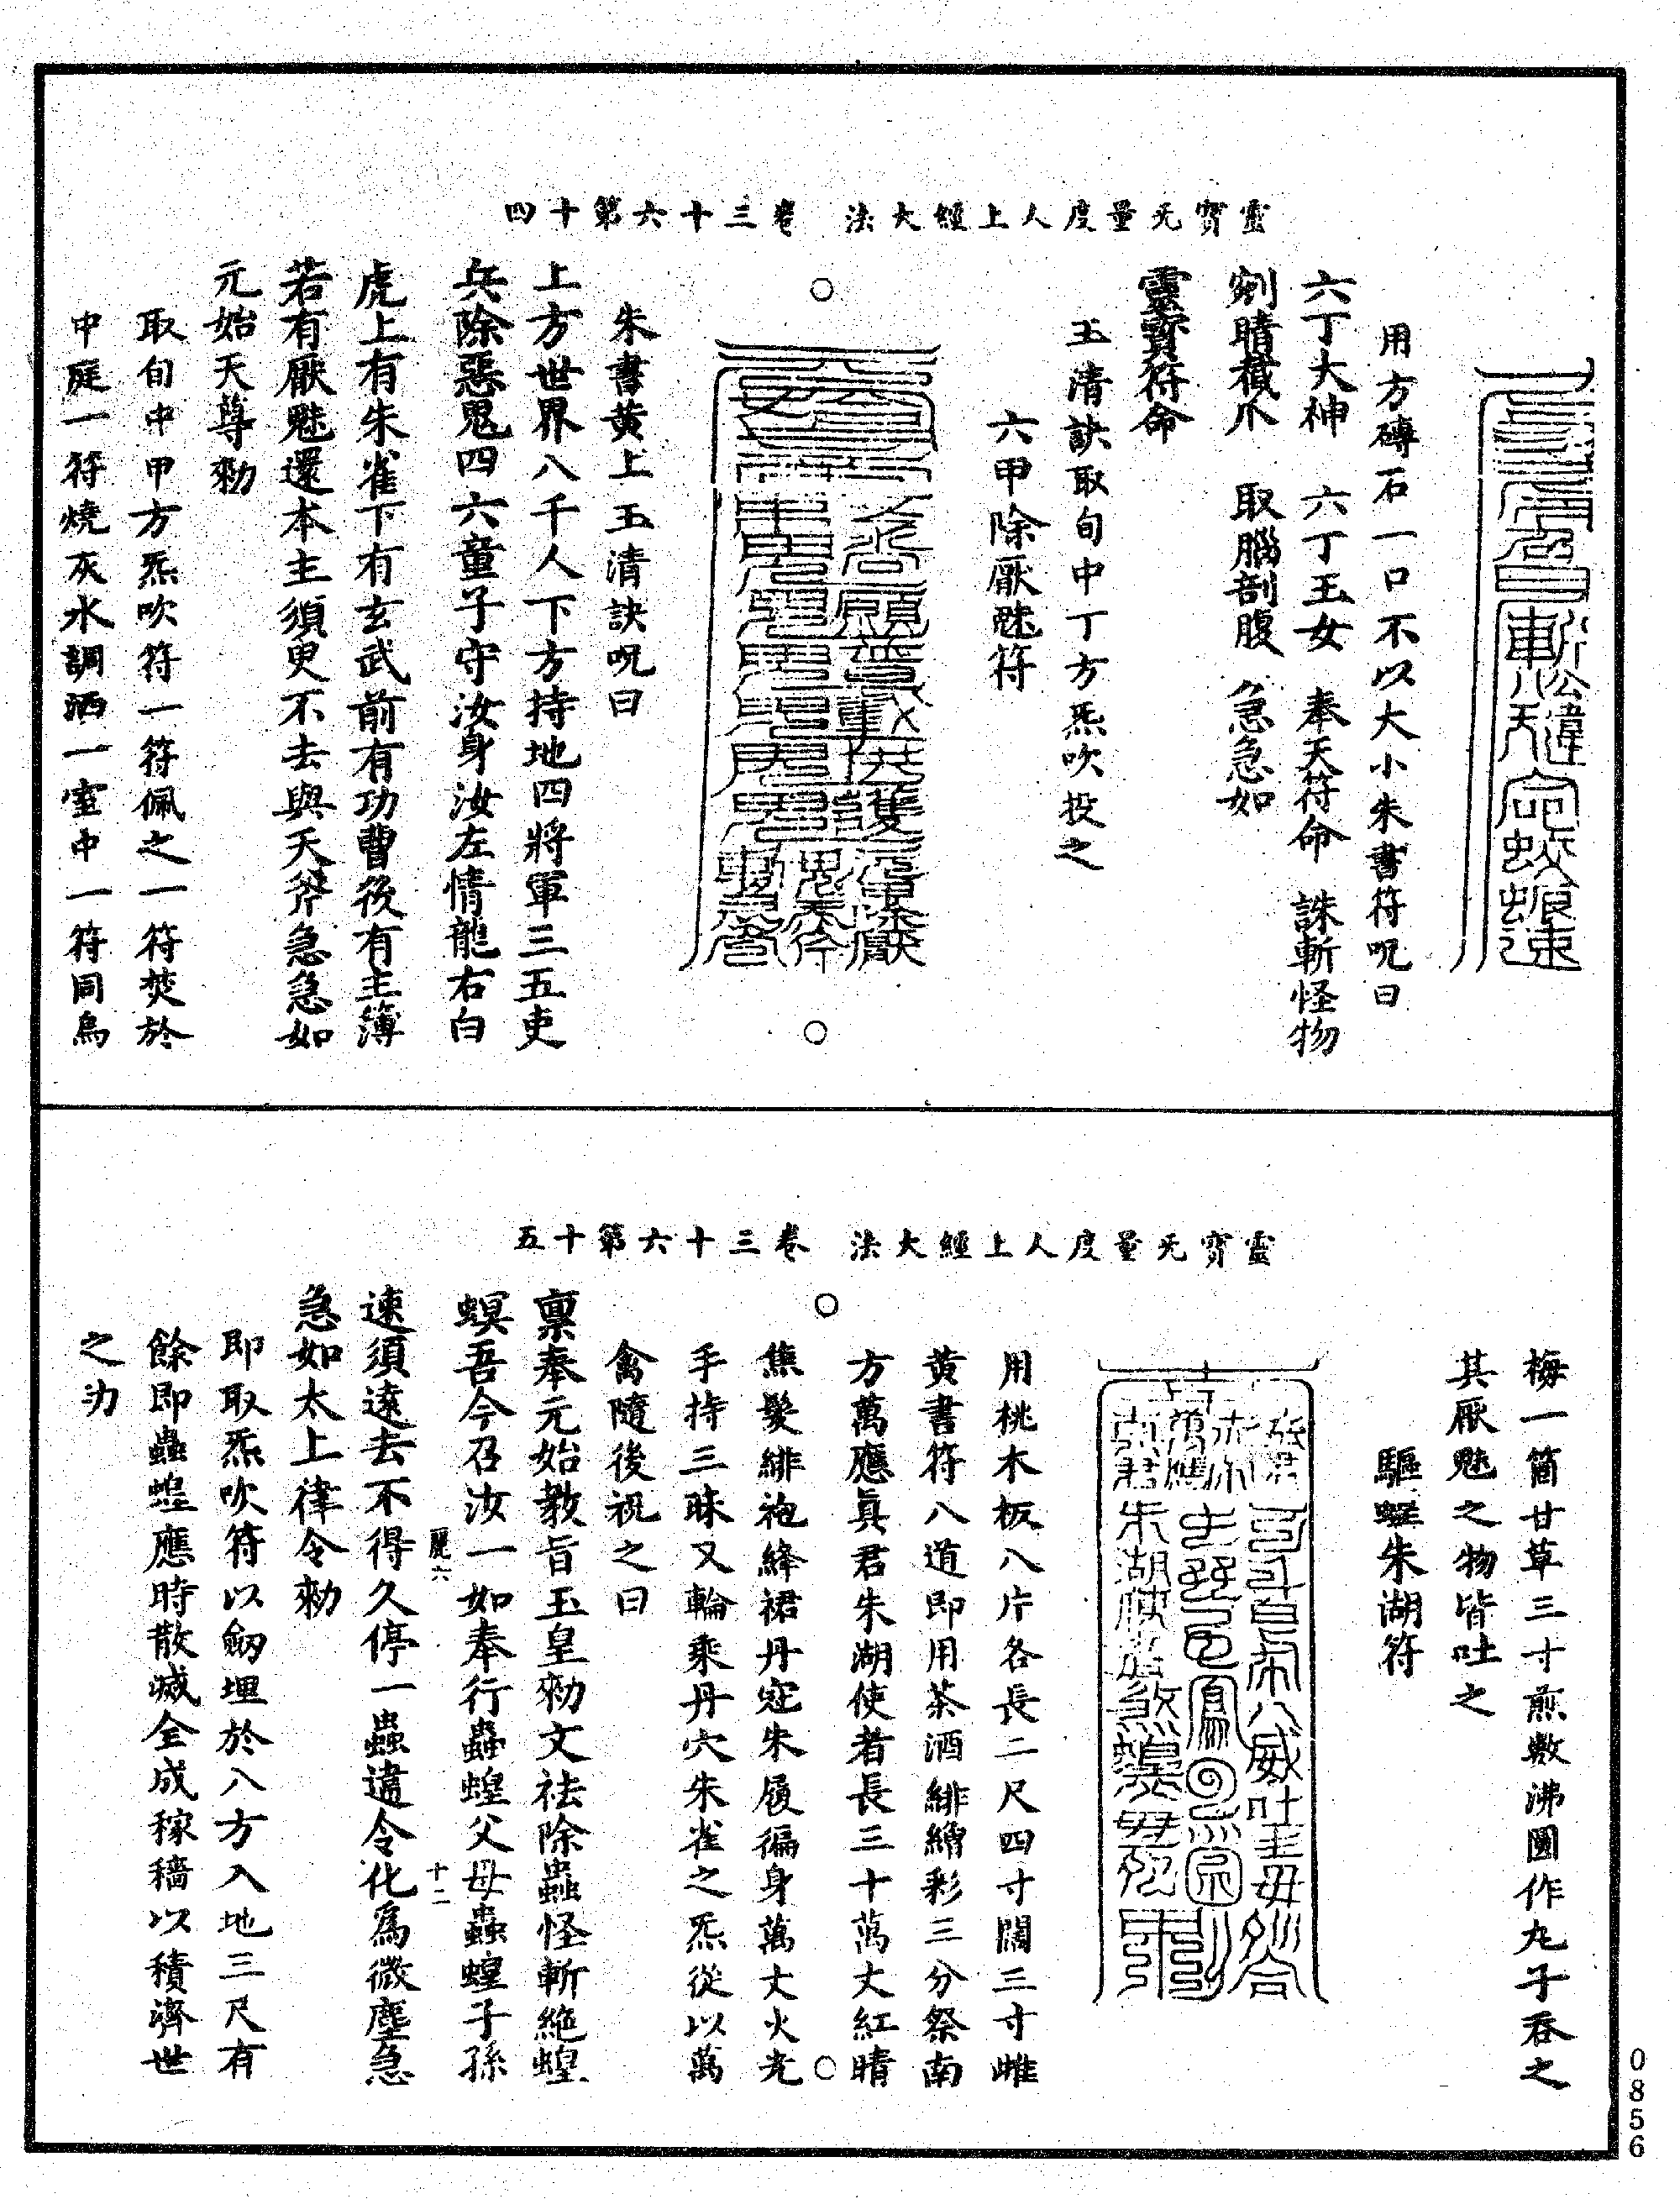 靈寶无量度人上經大法　卷三十六第十四
用方磚石一口不以大小朱書符呪曰
六丁大神　六丁玉女　奉天符命　誅斬怪物
剜睛截爪　取腦剖腹　急急如
靈寶符命
玉清訣取旬中丁方炁吹投之
六甲除厭魅符
朱書黃上玉清訣呪曰
上方世界八千人下方持地四將軍三五吏
兵除惡鬼四六童子守汝身汝左情龍右白
虎上有朱雀下有玄武前有功曹後有主簿
若有厭魅還本主須臾不去與天斧急急如
元始天尊勑
取旬中甲方炁吹符一符佩之一符焚於
中庭一符燒灰水調洒一室中一符同烏
靈寶无量度人上經大法　卷三十六第十五
梅一箇甘草三寸煎數沸圓作丸子吞之
其厭魅之物皆吐之
驅蝗朱湖符
用桃木板八片各長二尺四寸闊三寸雌
黃書符八道即用茶酒緋繒彩三分祭南
方萬應真君朱湖使者長三十萬丈紅睛
焦髮緋袍絳裙丹寇朱履徧身萬丈火光
手持三昧叉輪乘丹穴朱雀之炁從以萬
禽隨後祝之曰
稟奉元始教旨玉皇勑文祛除蟲怪斬絶蝗
螟吾今召汝一如奉行蟲蝗父母蟲蝗子孫
麗六
十二
速須遠去不得久停一蟲違令化為微塵急
急如太上律令勑
即取炁吹符以劒埋於八方入地三尺有
餘即蟲蝗應時散滅全成稼穡以積濟世
之功
0856